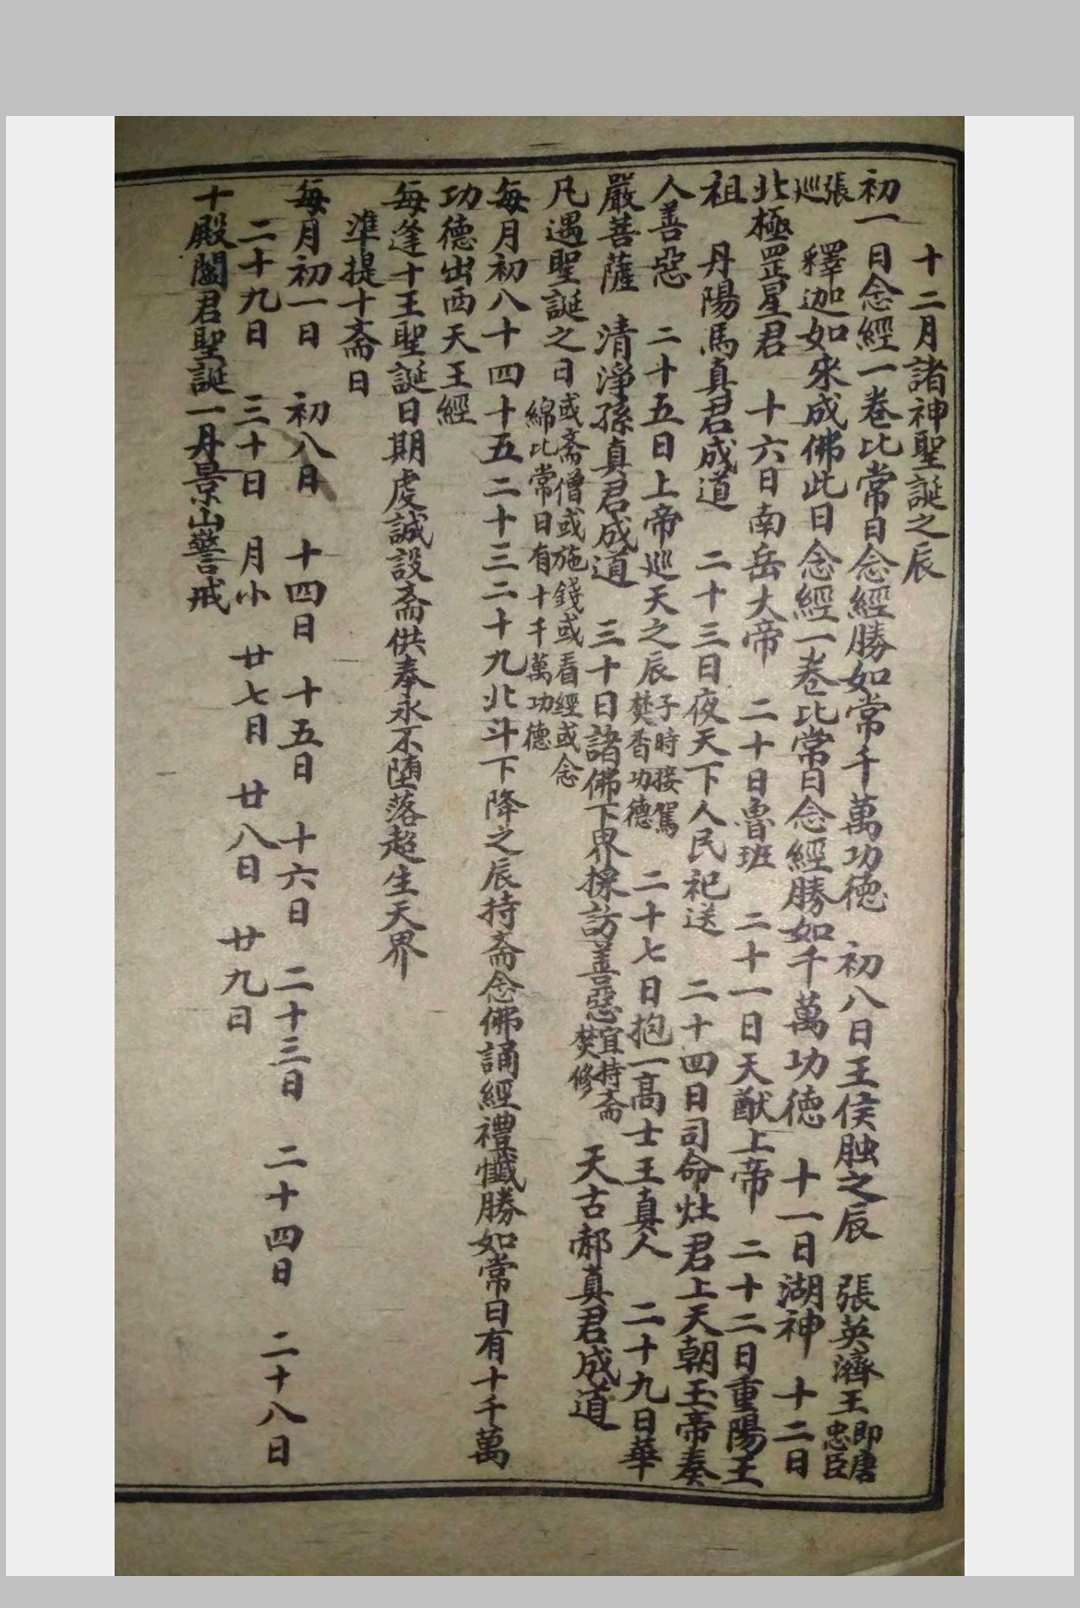 十二月諸神聖誕之辰
初一日念經一卷比常日念經勝如常千萬功德　初八日王侯腊之辰　張英濟王即唐忠臣
張巡　釋迦如來成佛此日念經一卷比常日念經勝如千萬功德　十一日湖神　十二日
北極罡星君　十六日南岳大帝　二十日魯班　二十一日天猷上帝　二十二日重陽王
祖　丹陽馬真君成道　二十三日夜天下人民祀送　二十四日司命灶君上天朝玉帝奏
人善惡　二十五日上帝巡天之辰子時接駕焚香功德　二十七日抱一高士王真人　二十九日華
嚴菩薩　清淨孫真君成道　三十日諸佛下界採訪善惡宜持斋焚修　天古郝真君成道
凡遇聖誕之日或斋僧或施錢或看經或念綿比常日有十千萬功德
每月初八十四十五二十三二十九北斗下降之辰持斋念佛誦經禮懺勝如常日有十千萬
功德出西天王經
每逢十王聖誕日期虔誠設斋供奉永不墮落超生天界
準提十斋日
每月初一日　初八日　十四日　十五日　十六日　二十三日　二十四日　二十八日
二十九日　三十日　月小　廿七日　廿八日　廿九日
十殿閻君聖誕一丹景山警戒